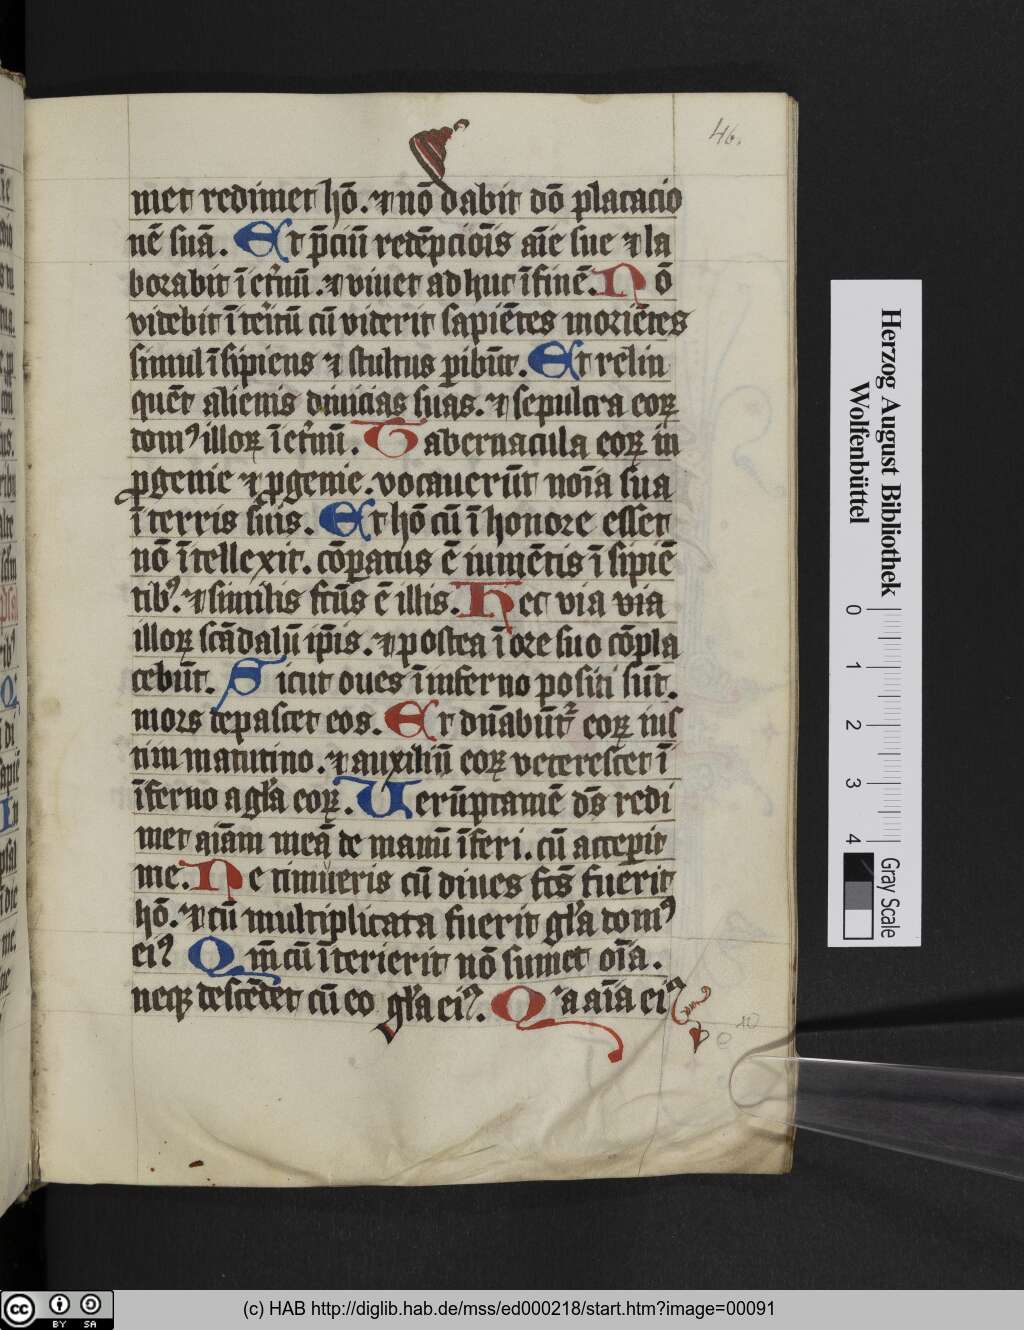 46.
met redimet hō. ⁊ nō dabit dō placacio
nē suā. Et p̄ciū redēpciōis aīe sue ⁊ la
borabit ī et̓nū. ⁊ viuet adhuc ī finē. Nō
videbit īteritū cū viderit sapiētes moriētes
simul īsipiens ⁊ stultus ꝑibūt. Et relin
quēt alienis diuicias suas. ⁊ sepulcra eoꝝ
domꝰ illoꝝ ī et̓nū. Tabernacula eoꝝ in
ꝓgenie ⁊ ꝓgenie. vocauerūt noīa sua
ī terris suis. Et hō cū ī honore esset
nō ītellexit. cōꝑatus ē iumētis īsipiē
tibꝰ. ⁊ similis fc̄us ē illis. Hec via via
illoꝝ scādalū ip̄is. ⁊ postea ī ore suo cōpla
cebūt. Sicut oues ī inferno positi sūt.
mors depascet eos. Et dn̄abūt᷑ eoꝝ ius
ti in matutino. ⁊ auxiliū eoꝝ veterescet ī
īferno a gl̓a eoꝝ. Uerūptamē ds̄ redi
met aīam meā de manu īferi. cū acceperit
me. Ne timueris cū diues fc̄s fuerit
hō. ⁊ cū multiplicata fuerit gl̓a domꝰ
eiꝰ Qm̄ cū īterierit nō sumet oīa.
neqꝫ descēdet cū eo gl̓a eiꝰ. Qͥa aīa eiꝰ
Herzog August Bibliothek
Wolfenbüttel
0 1 2 3 4
Gray Scale
cc BY SA
(c) HAB http://diglib.hab.de/mss/ed000218/start.htm?image=00091